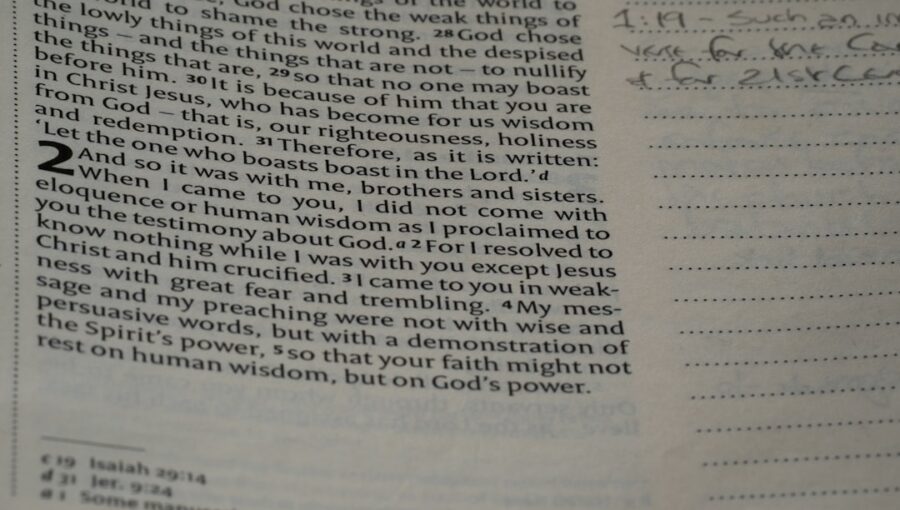 things of the world to
world to shame the strong. 28 God chose the weak things of
the lowly things of this world and the despised
things – and the things that are not – to nullify
the things that are, 29 so that no one may boast
before him. 30 It is because of him that you are
in Christ Jesus, who has become for us wisdom
from God – that is, our righteousness, holiness
and redemption. 31 Therefore, as it is written:
‘Let the one who boasts boast in the Lord.’ d
2 And so it was with me, brothers and sisters.
When I came to you, I did not come with
eloquence or human wisdom as I proclaimed to
you the testimony about God. a 2 For I resolved to
know nothing while I was with you except Jesus
Christ and him crucified. 3 I came to you in weak-
ness with great fear and trembling. 4 My mes-
sage and my preaching were not with wise and
persuasive words, but with a demonstration of
the Spirit’s power, 5 so that your faith might not
rest on human wisdom, but on God’s power.
c 19 Isaiah 29:14
d 31 Jer. 9:24
a 1 Some
1:19 - Such an
for the
& for 21st